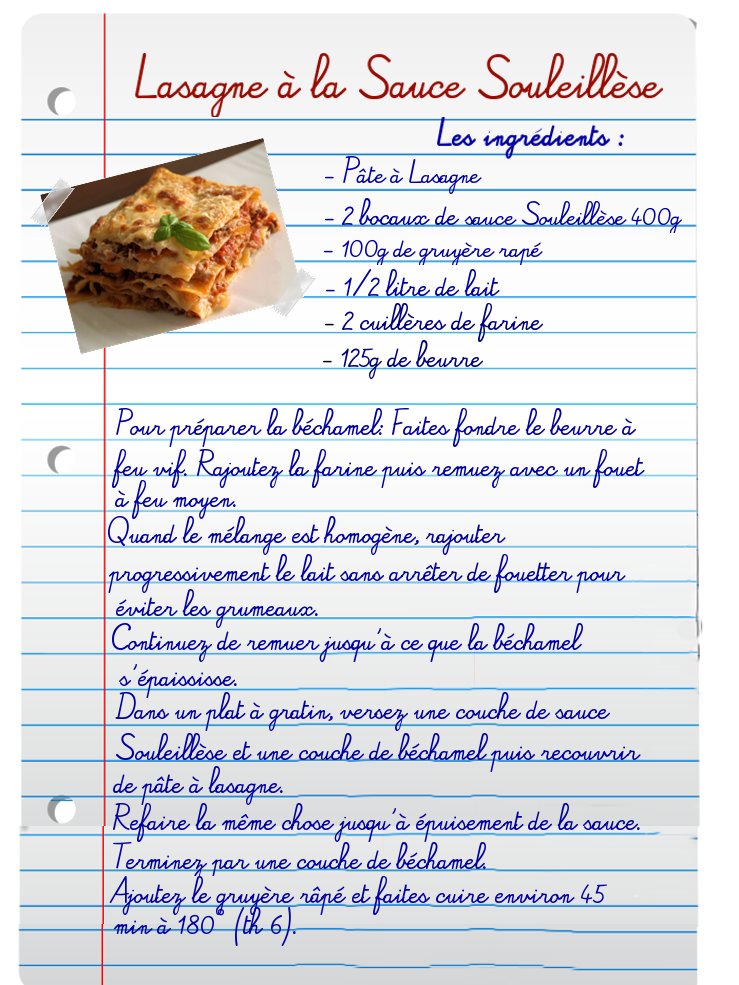 Lasagne à la Sauce Souleillèse
Les ingrédients :
- Pâte à Lasagne
- 2 bocaux de sauce Souleillèse 400g
- 100g de gruyère rapé
- 1/2 litre de lait
- 2 cuillères de farine
- 125g de beurre
Pour préparer la béchamel: Faites fondre le beurre à
feu vif. Rajoutez la farine puis remuez avec un fouet
à feu moyen.
Quand le mélange est homogène, rajouter
progressivement le lait sans arrêter de fouetter pour
éviter les grumeaux.
Continuez de remuer jusqu'à ce que la béchamel
s'épaississe.
Dans un plat à gratin, versez une couche de sauce
Souleillèse et une couche de béchamel puis recouvrir
de pâte à lasagne.
Refaire la même chose jusqu'à épuisement de la sauce.
Terminez par une couche de béchamel.
Ajoutez le gruyère râpé et faites cuire environ 45
min à 180° (th 6).